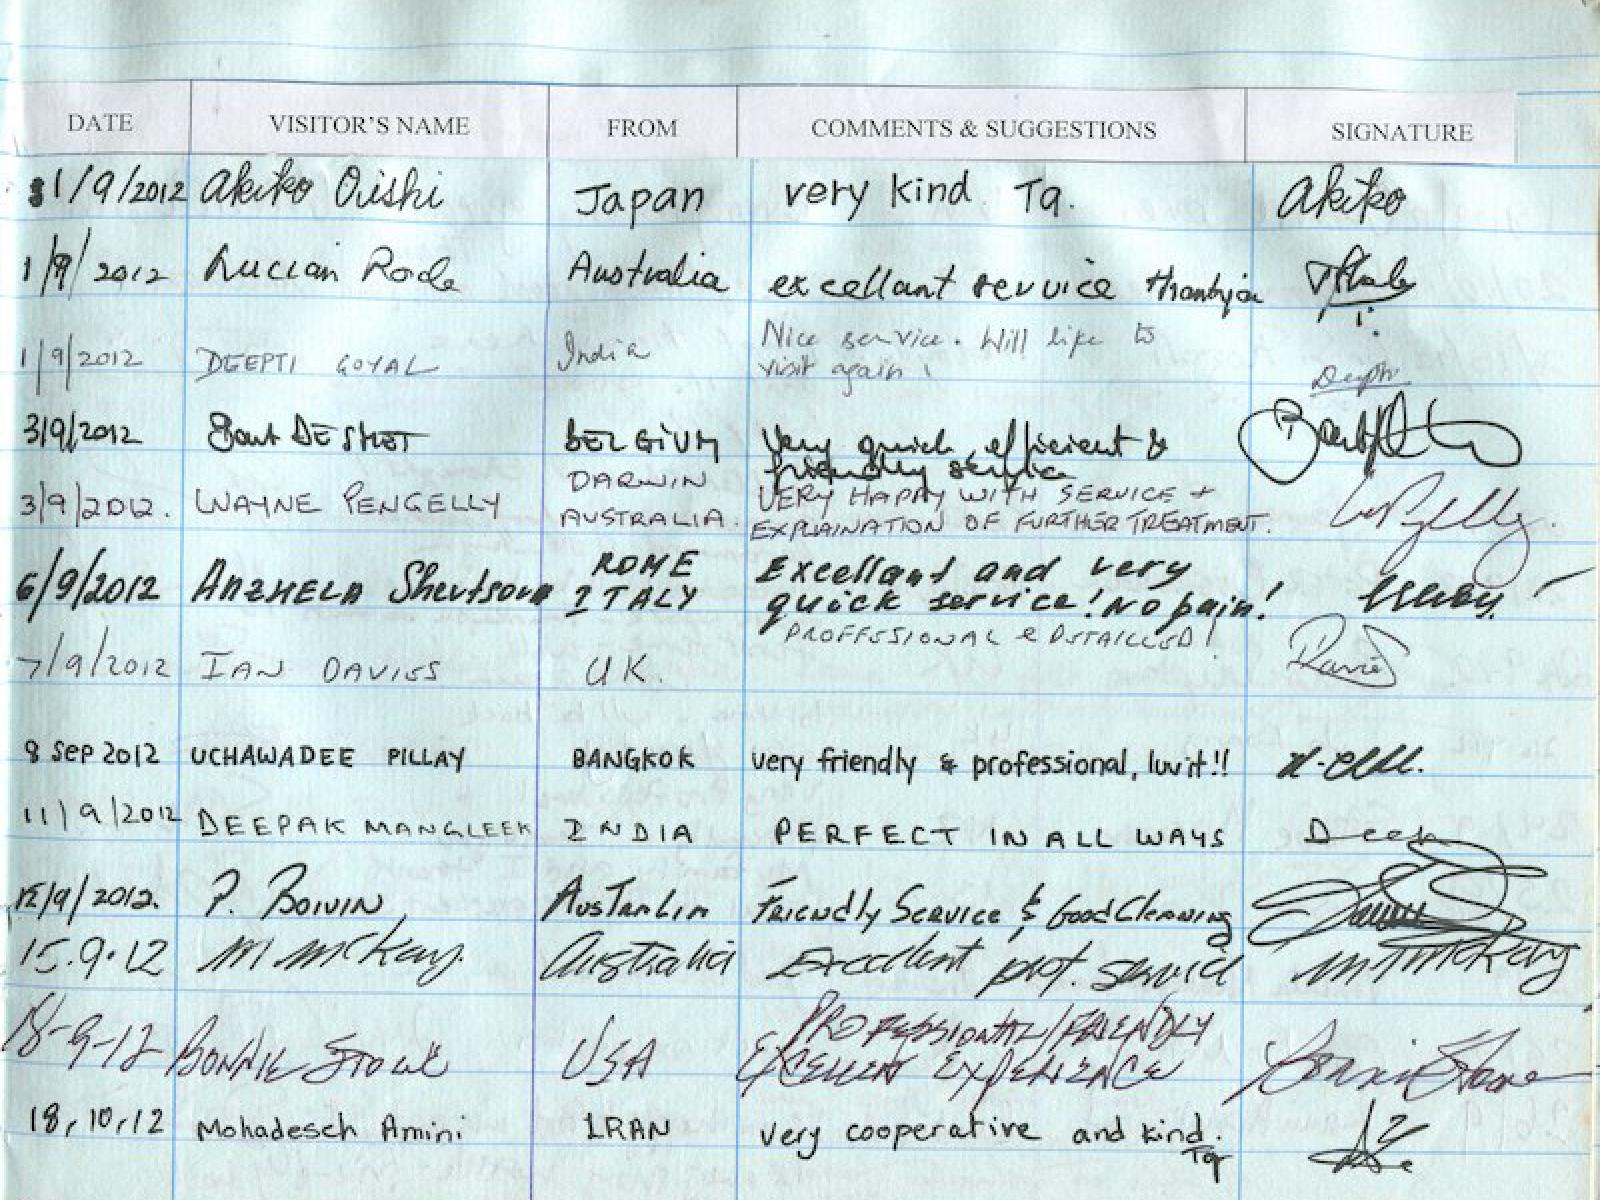 DATE VISITOR'S NAME FROM COMMENTS & SUGGESTIONS SIGNATURE
1/9/2012 Akiko Oishi Japan very kind. Ta. Akiko
1/9/2012 Lucian Rode Australia excellant service
1/9/2012 DEEPTI GOYAL India Nice service. Will like to
visit again! Deepti
3/9/2012 Bart DESMET BELGIUM Very quick, efficient &
friendly service
3/9/2012. WAYNE PENGELLY DARWIN
AUSTRALIA. VERY HAPPY WITH SERVICE +
EXPLAINATION OF FURTHER TREATMENT.
6/9/2012 ANZHELA Shevtsova ROME
ITALY Excellant and very
quick service! No pain!
7/9/2012 IAN DAVIES U.K. PROFFESSIONAL & DETAILLED!
8 Sep 2012 UCHAWADEE PILLAY BANGKOK very friendly & professional, luv it!!
11/9/2012 DEEPAK MANGLEEK INDIA PERFECT IN ALL WAYS Deepak
12/9/2012. P. BOIVIN Australia Friendly Service & Good Cleaning
15.9.12 M McKay. Australia Excellent prof. service M McKay
18-9-12 BONNIE STOWE USA PROFESSIONAL/FRIENDLY
EXCELLENT EXPERIENCE
18,10,12 Mohadeseh Amini IRAN very cooperative and kind.
Ta